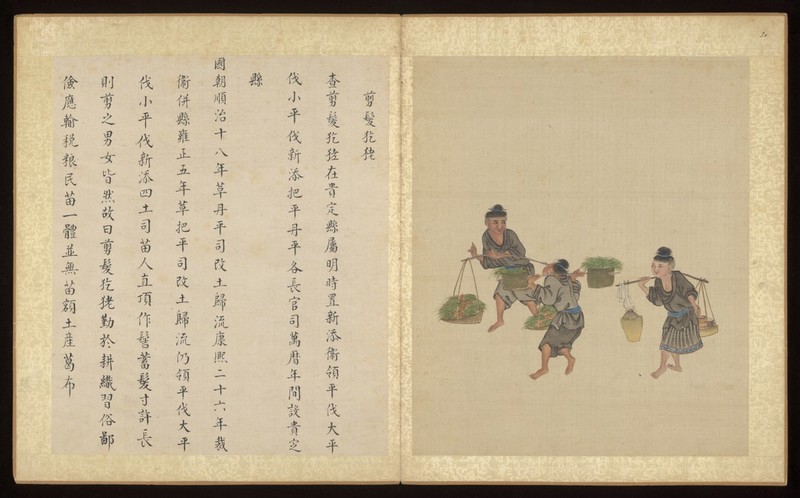 剪髮狇狫
查剪髮狇狫在貴定縣屬明時置新添衞領平伐大平
伐小平伐新添把平丹平各長官司萬曆年間設貴定
縣
國朝順治十八年草丹平司改土歸流康熙二十六年裁
衞併縣雍正五年草把平司改土歸流仍領平伐大平
伐小平伐新添四土司苗人直頂作髻蓄髮寸許長
則剪之男女皆然故曰剪髮狇狫勤於耕織習俗鄙
儉應輸稅粮民苗一體並無苗額土産葛布